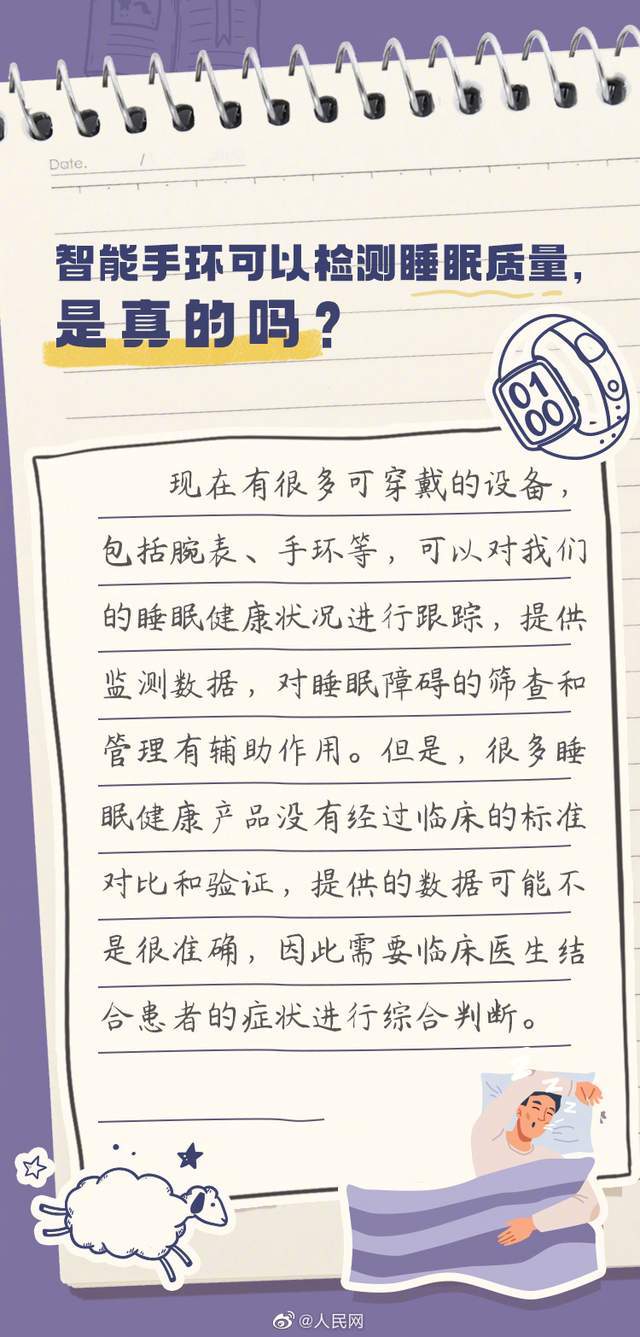 Date. /
智能手环可以检测睡眠质量,
是真的吗?
01
00
现在有很多可穿戴的设备,
包括腕表、手环等,可以对我们
的睡眠健康状况进行跟踪,提供
监测数据,对睡眠障碍的筛查和
管理有辅助作用。但是,很多睡
眠健康产品没有经过临床的标准
对比和验证,提供的数据可能不
是很准确,因此需要临床医生结
合患者的症状进行综合判断。
z z
z
z
@人民网